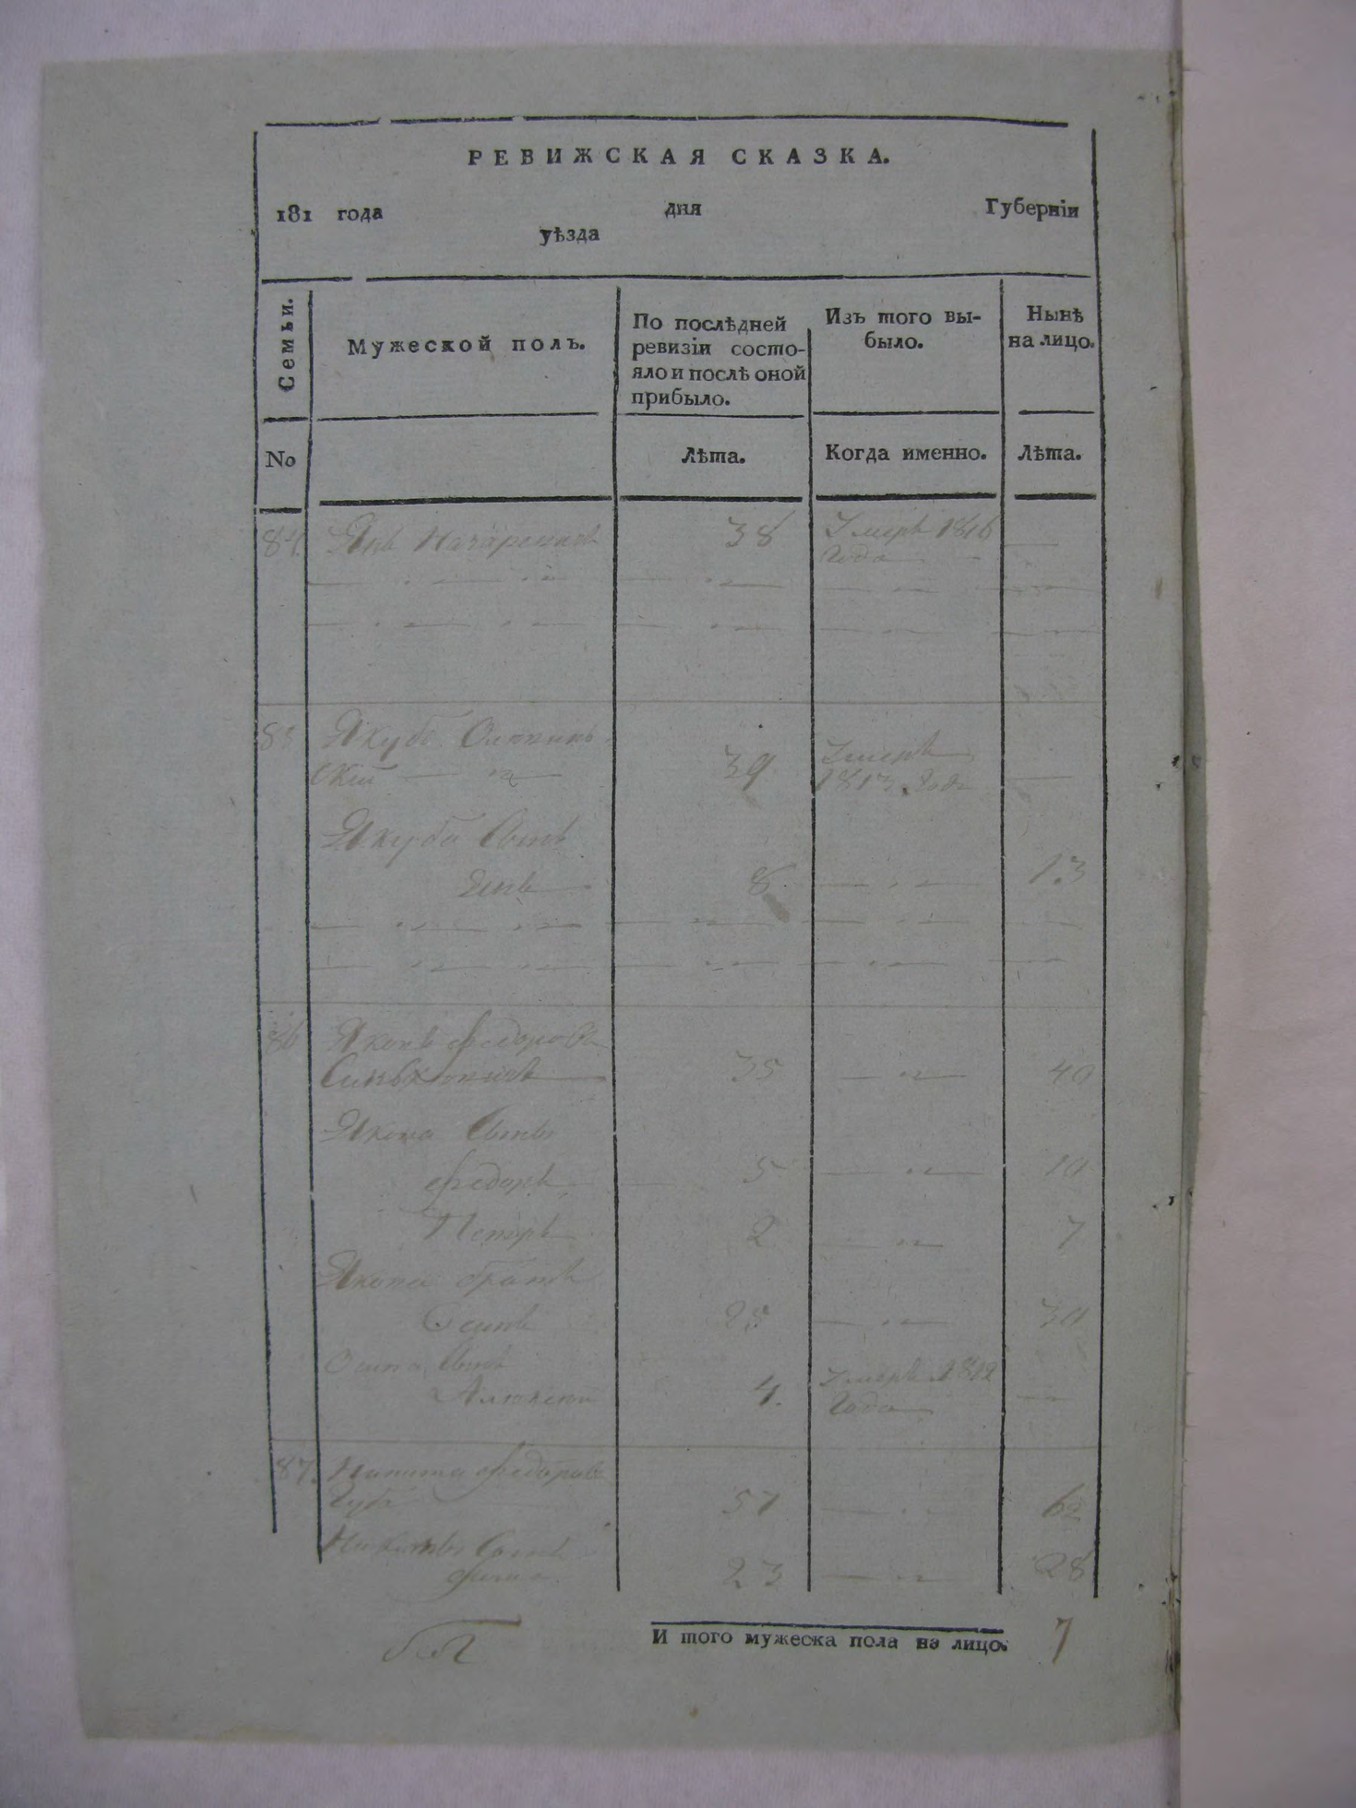 РЕВИЖСКАЯ СКАЗКА.
181 года дня Губерніи
уѣзда
Семьи. Мужеской полъ. По послѣдней ревизіи состо- яло и послѣ оной прибыло. Изъ того вы- было. Нынѣ на лицо.
No Лѣта. Когда именно. Лѣта.
84. Янъ 38 Умеръ 1816
Года
85 Якубъ
ский 39 Умеръ
1813 Года
Якуба Сынъ
Янъ 8 13
86 Якопъ Федоровъ
35 40
Якопа Сыны
Федоръ 5 10
Петръ 2 7
Якопа братъ
Осипъ 25 30
Осипа Сынъ
4. Умеръ 1812
Года
87. Никита Федоровъ
57 62
Никиты Сынъ
23 28
И того мужеска пола на лицо. 7